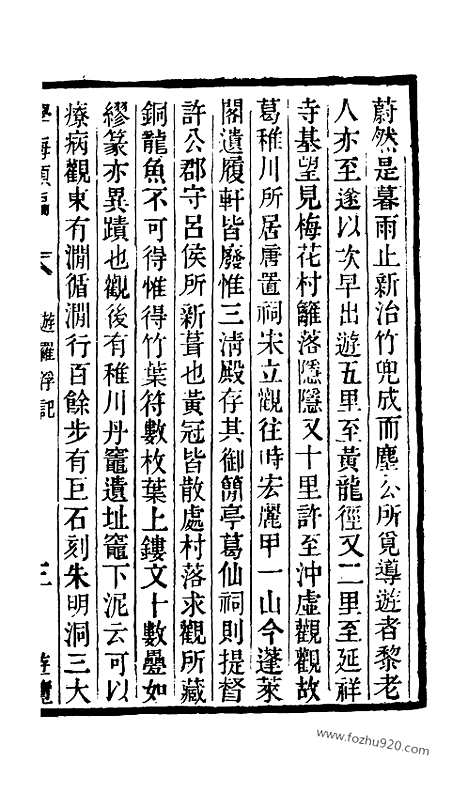 蔚然是暮雨止新治竹兜成而塵公所覓導遊者黎老
人亦至遂以次早出遊五里至黃龍徑又二里至延祥
寺基望見梅花村籬落隱隱又十里許至沖虛觀觀故
葛稚川所居唐置祠宋立觀往時宏麗甲一山今蓬萊
閣遺履軒皆廢惟三清殿存其御簡亭葛仙祠則提督
許公郡守呂侯所新葺也黃冠皆散處村落求觀所藏
銅龍魚不可得惟得竹葉符數枚葉上鏤文十數疊如
繆篆亦異蹟也觀後有稚川丹竈遺址竈下泥云可以
療病觀東有澗循澗行百餘步有巨石刻朱明洞三大
學海類編 八 遊羅浮記 三 遊覽
www.fozhu920.com